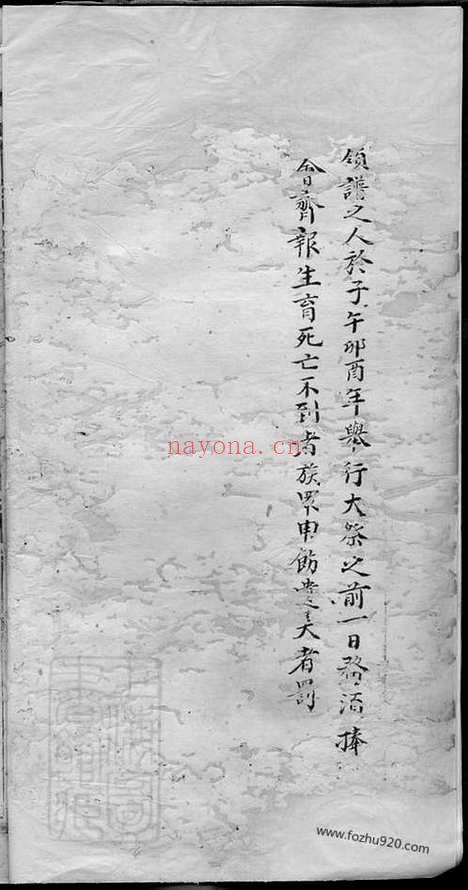 領譜之人於子午卯酉年舉行大祭之前一日務須捧
會齊報生育死亡不到者族眾申飭遺失者罰
nayona.cn
www.fozhu920.com